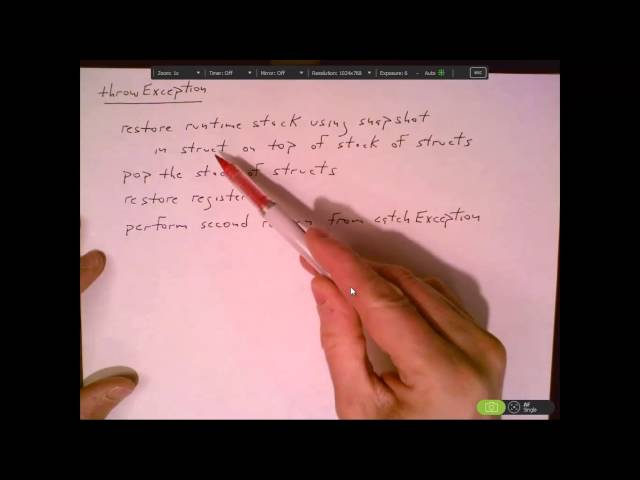 Zoom: 1x Timer: Off Mirror: Off Resolution: 1024x768 Exposure: 6 - Auto
throwException
restore runtime stack using snapshot
in struct on top of stack of structs
pop the stack of structs
restore register
perform second from catchException
AF
Single